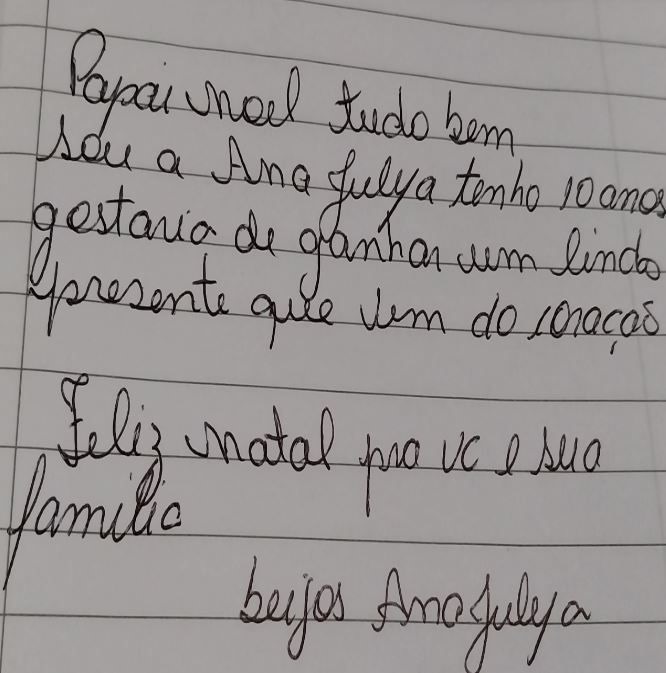 Papai noel tudo bem
sou a Ana Julya tenho 10 anos
gostaria de ganhar um lindo
presente que vem do coração
Feliz natal pra vc e sua
familia
beijos Ana Julya